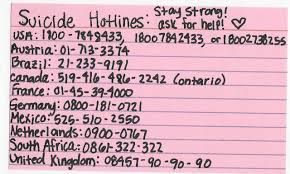 Suicide Hotlines: Stay Strong!
ask for help! ♡
USA: 1800-7849433, 18007842433, or 18002738255
Austria: 01-713-3374
Brazil: 21-233-9191
Canada: 519-416-486-2242 (Ontario)
France: 01-45-39-4000
Germany: 0800-181-0721
Mexico: 525-510-2550
Netherlands: 0900-0767
South Africa: 0861-322-322
United Kingdom: 08457-90-90-90